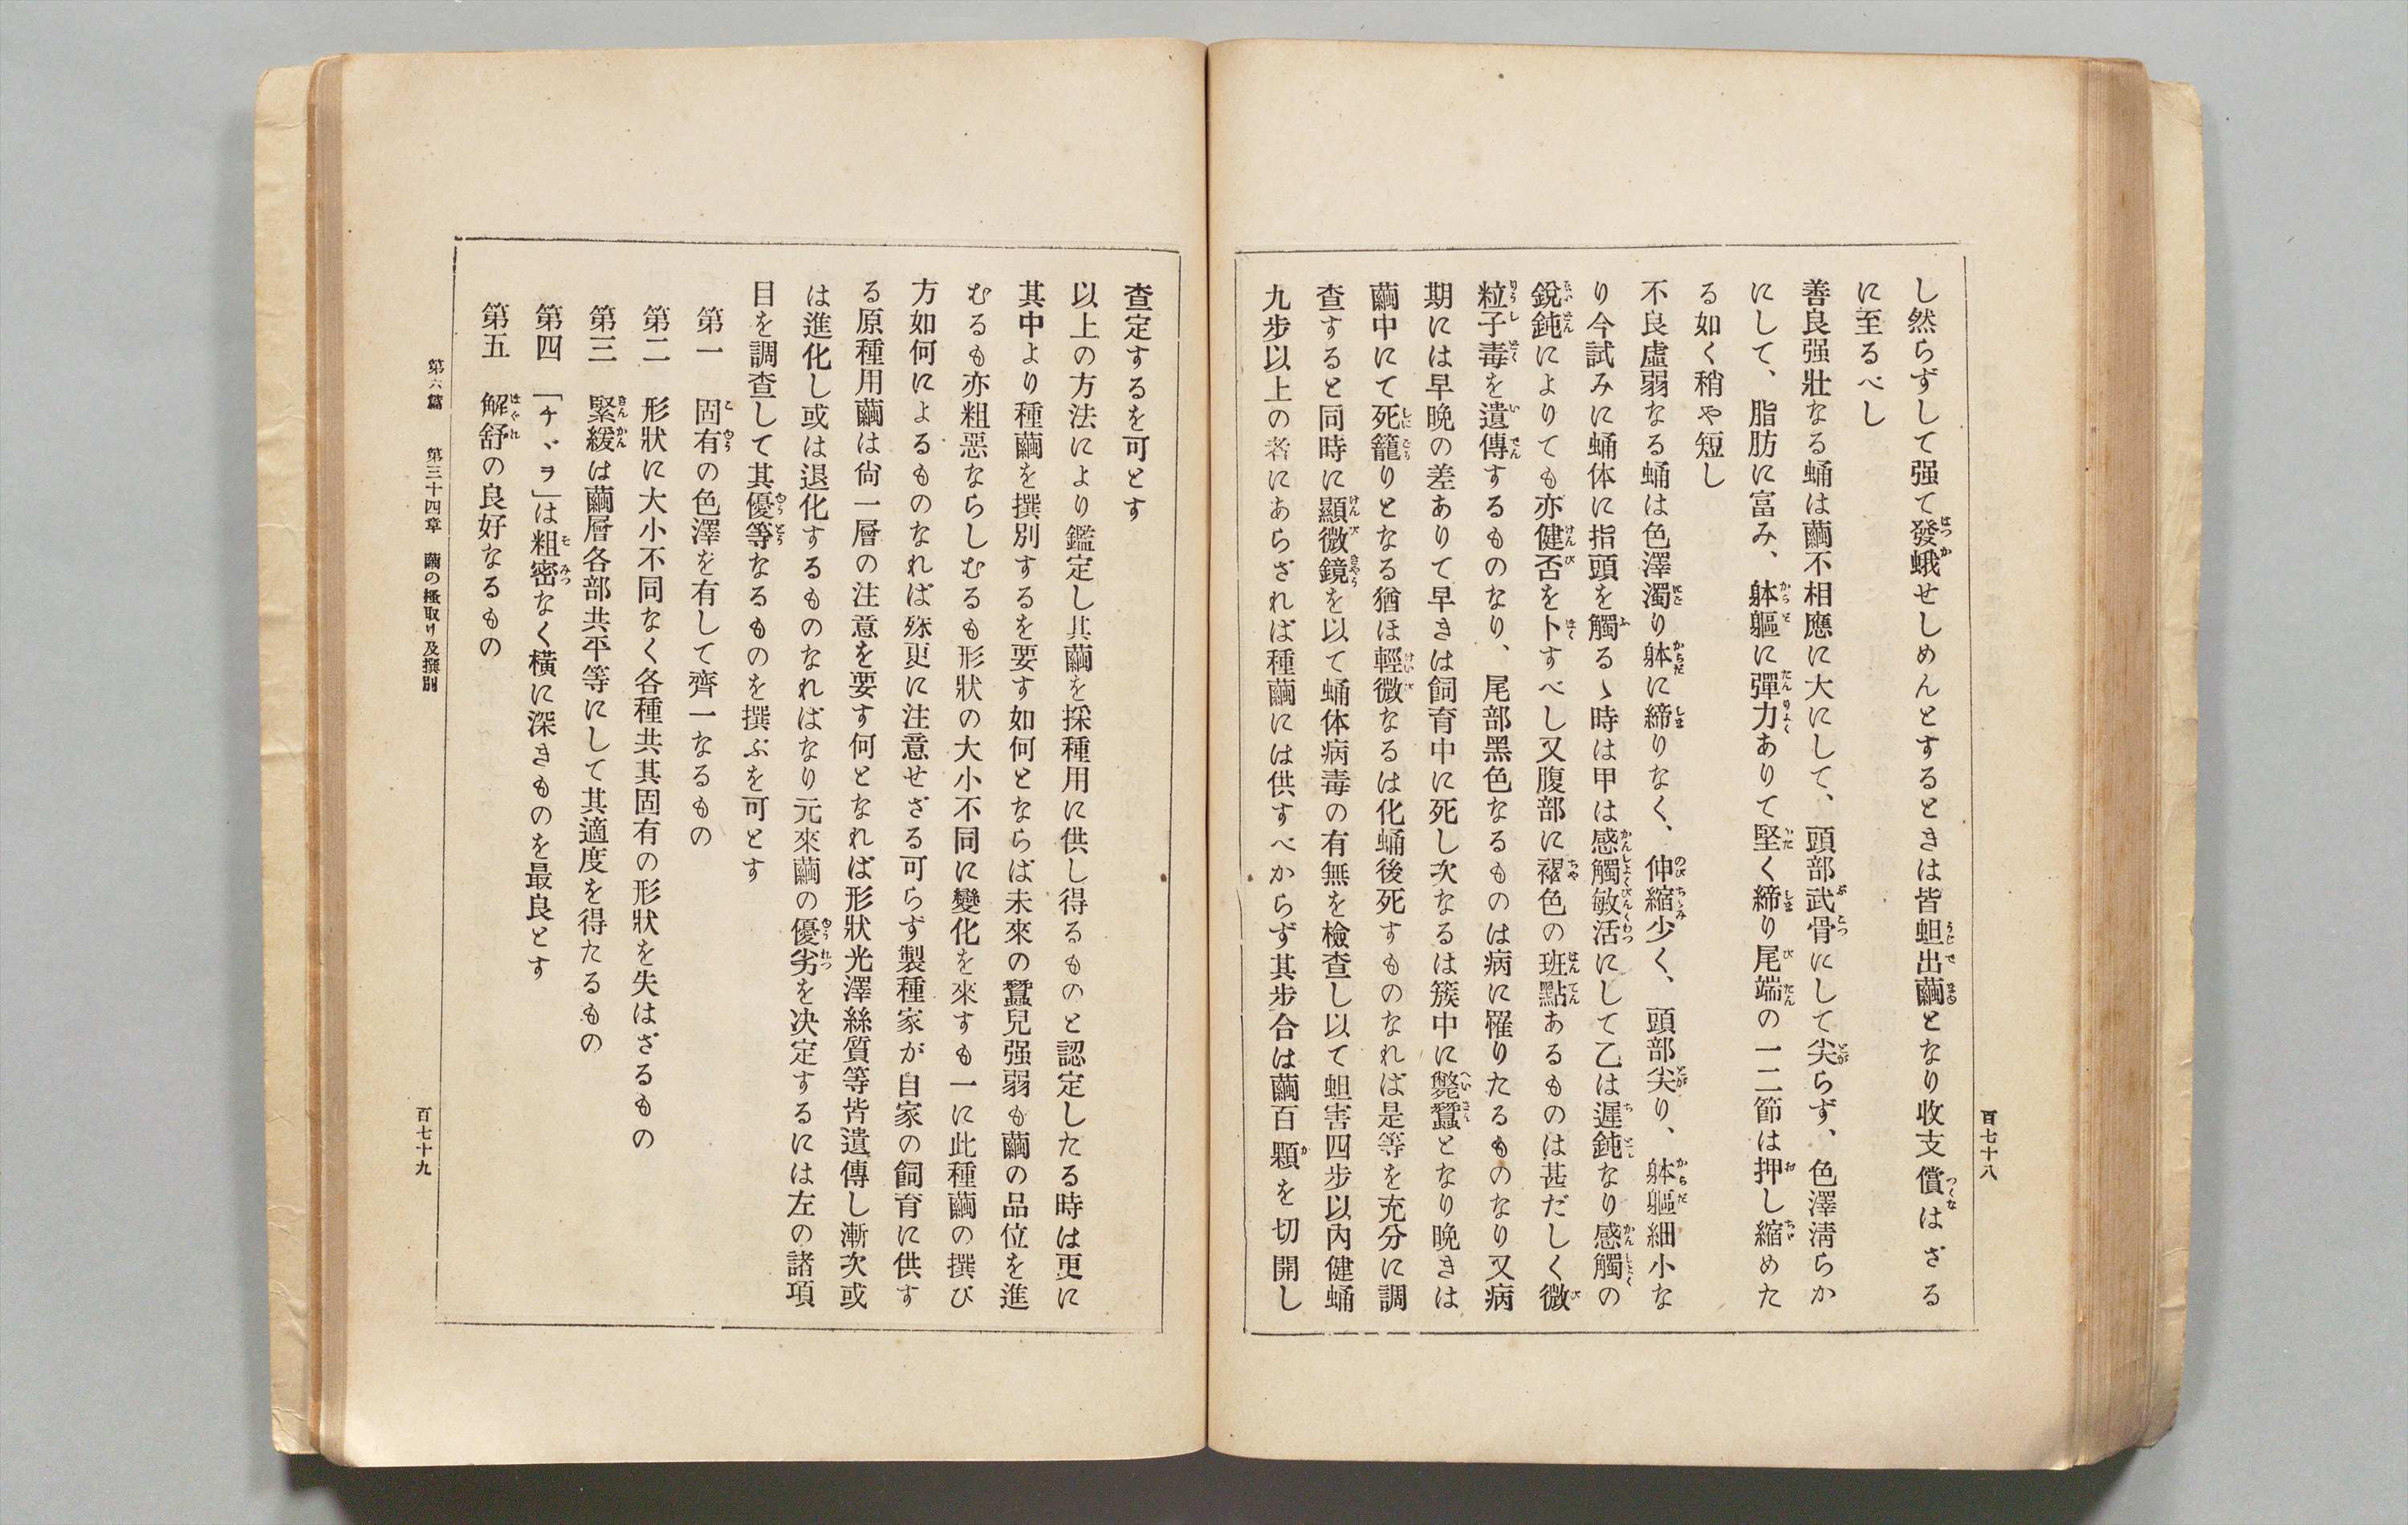 百七十八
し然らずして强て發蛾せしめんとするときは皆蛆出繭となり收支償はざる
に至るべし
善良强壯なる蛹は繭不相應に大にして、頭部武骨にして尖らず、色澤淸らか
にして、脂肪に富み、躰軀に彈力ありて堅く締り尾端の一二節は押し縮めた
る如く稍や短し
不良虛弱なる蛹は色澤濁り躰に締りなく、伸縮少く、頭部尖り、躰軀細小な
り今試みに蛹体に指頭を觸るゝ時は甲は感觸敏活にして乙は遲鈍なり感觸の
銳鈍によりても亦健否を卜すべし又腹部に褐色の班點あるものは甚だしく微
粒子毒を遺傳するものなり、尾部黑色なるものは病に罹りたるものなり又病
期には早晩の差ありて早きは飼育中に死し次なるは簇中に斃蠶となり晩きは
繭中にて死籠りとなる猶ほ輕微なるは化蛹後死すものなれば是等を充分に調
査すると同時に顯微鏡を以て蛹体病毒の有無を檢査し以て蛆害四步以內健蛹
九步以上の者にあらざれば種繭には供すべからず其步合は繭百顆を切開し
査定するを可とす
以上の方法により鑑定し其繭を採種用に供し得るものと認定したる時は更に
其中より種繭を撰別するを要す如何とならば未來の蠶兒强弱も繭の品位を進
むるも亦粗惡ならしむるも形狀の大小不同に變化を來すも一に此種繭の撰び
方如何によるものなれば殊更に注意せざる可らず製種家が自家の飼育に供す
る原種用繭は尙一層の注意を要す何となれば形狀光澤絲質等皆遺傳し漸次或
は進化し或は退化するものなればなり元來繭の優劣を决定するには左の諸項
目を調査して其優等なるものを撰ぶを可とす
第一　固有の色澤を有して齊一なるもの
第二　形狀に大小不同なく各種共其固有の形狀を失はざるもの
第三　緊緩は繭層各部共平等にして其適度を得たるもの
第四　「チヾヲ」は粗密なく橫に深きものを最良とす
第五　解舒の良好なるもの
第六篇　第三十四章　繭の搔取り及撰別
百七十九